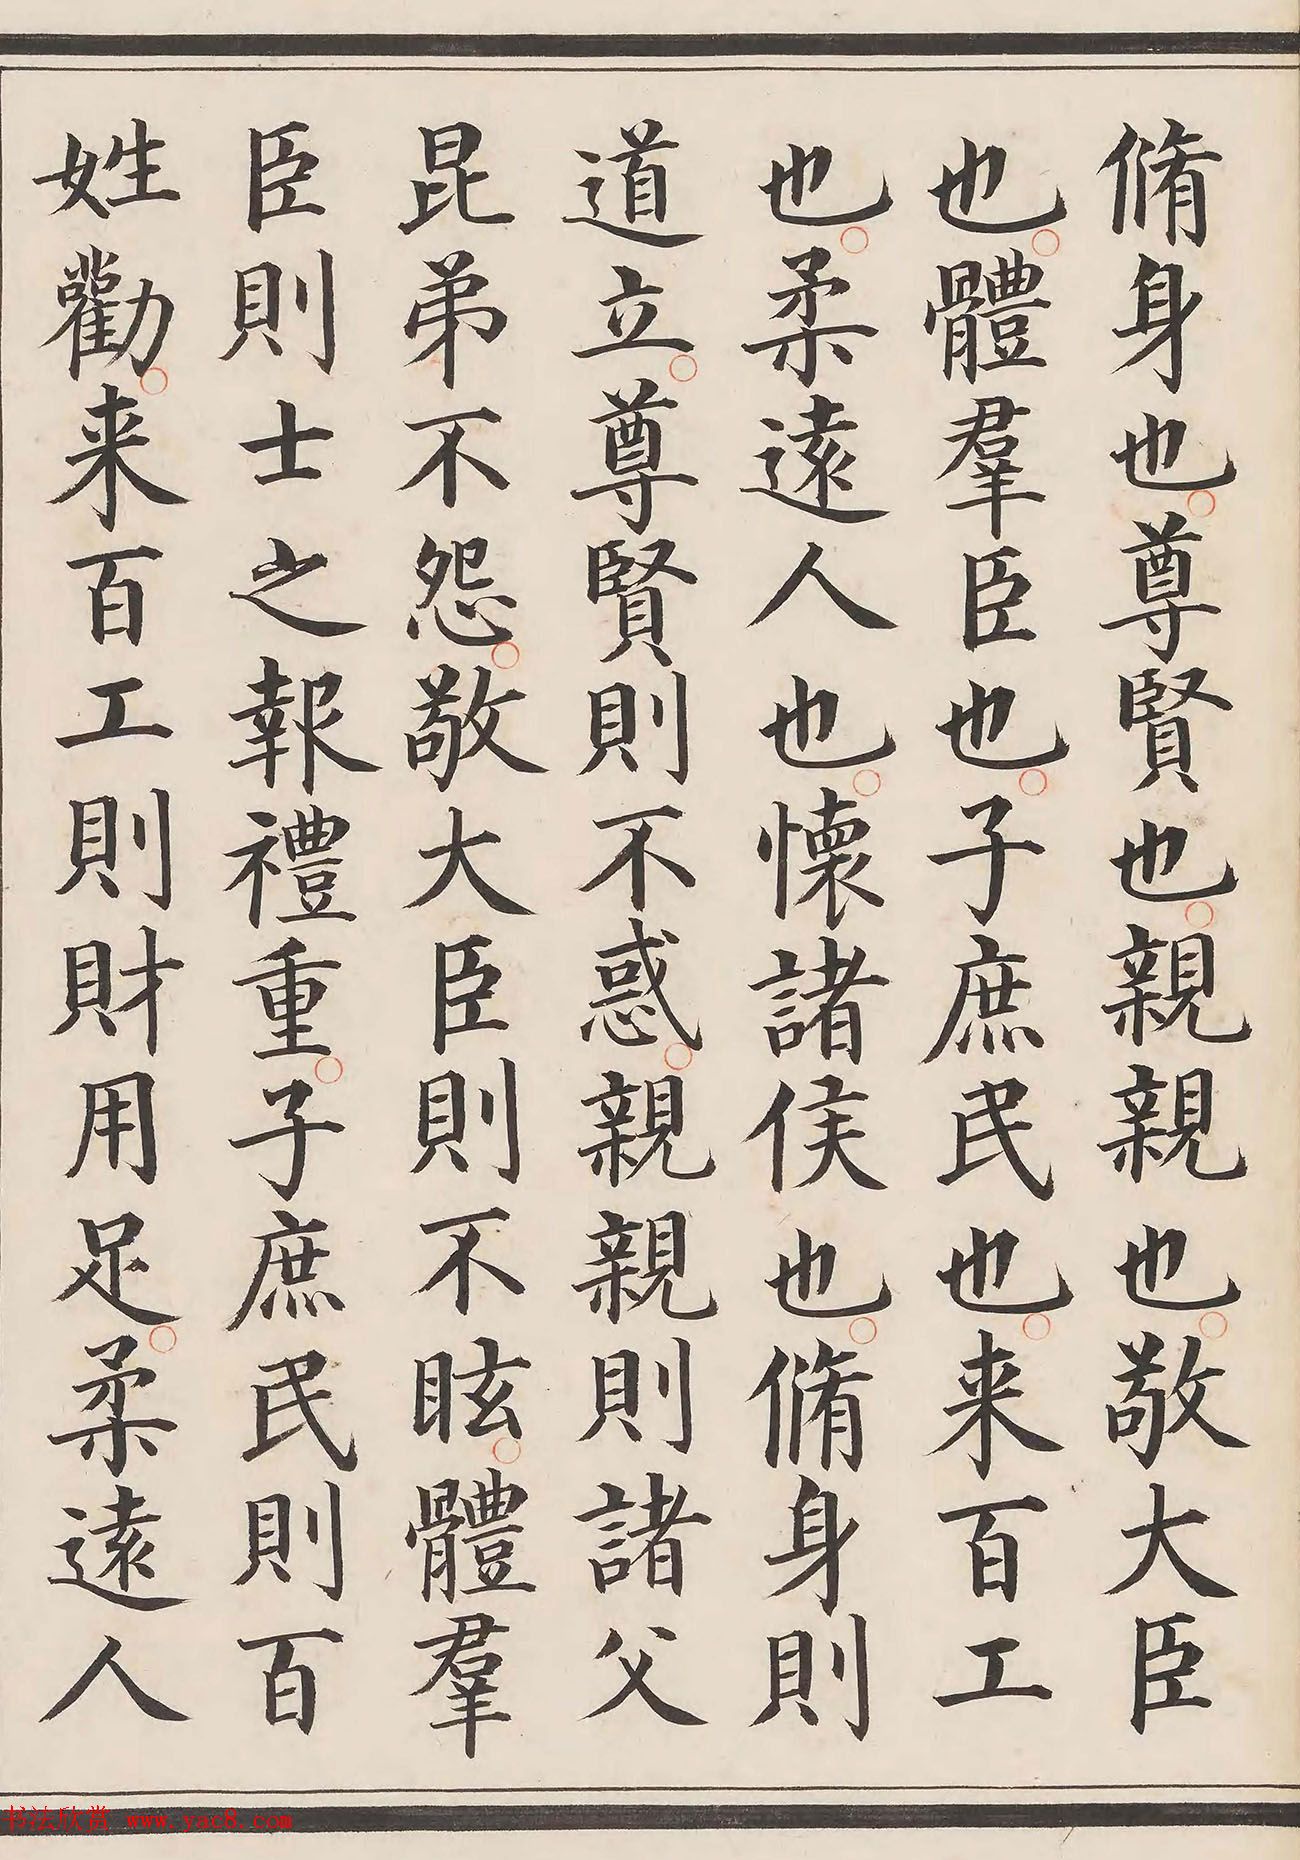 脩身也○尊賢也○親親也○敬大臣
也○體羣臣也○子庶民也○来百工
也○柔遠人也○懷諸侯也○脩身則
道立○尊賢則不惑○親親則諸父
昆弟不怨○敬大臣則不眩○體羣
臣則士之報禮重○子庶民則百
姓勸○来百工則財用足○柔遠人
书法欣赏 www.yac8.com